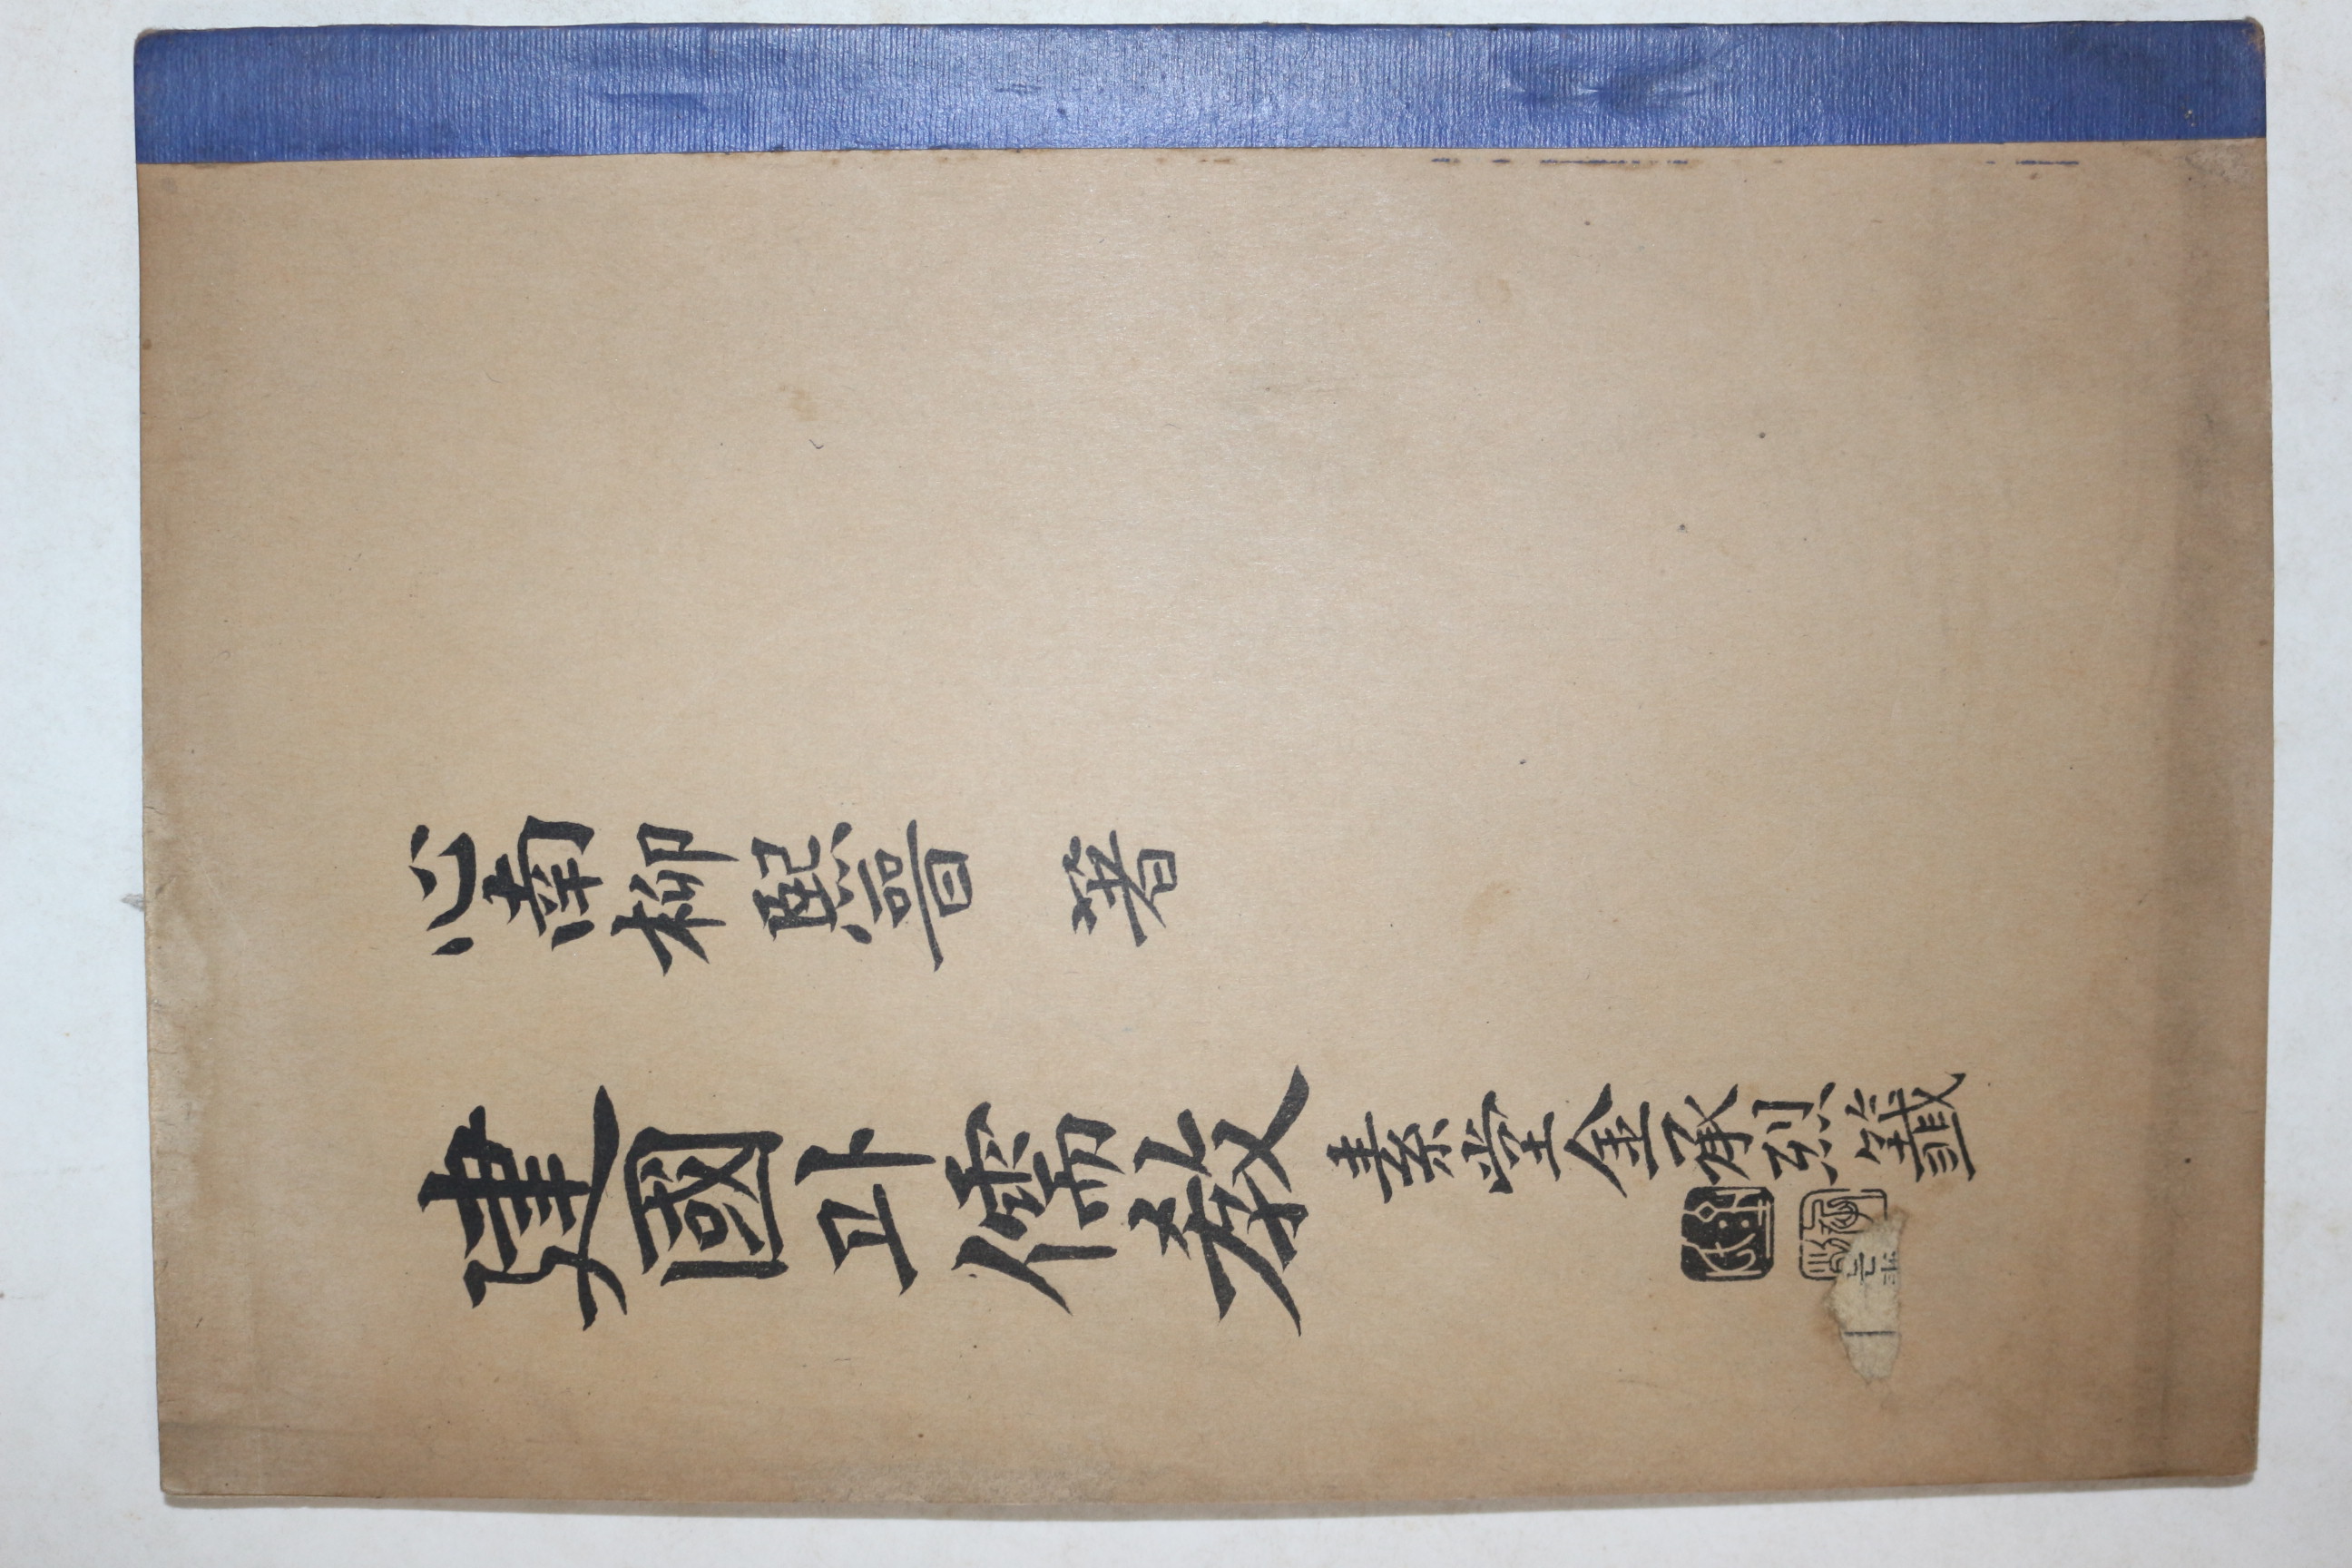 心南柳熙晉 著
建國과儒敎
素堂金承烈籤